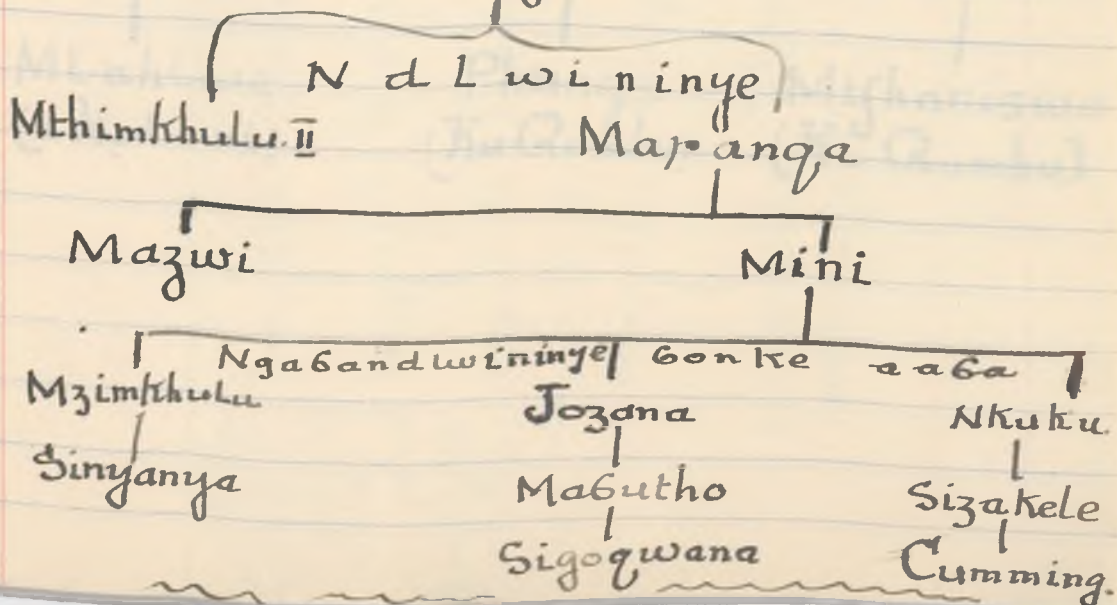 Ndlwininye
Mthimkhulu.II Mapanqa
Mazwi Mini
Ngaɓandlwininye ɓonke aaɓa
Mzimkhulu Jozana Nkuku.
Sinyanya Maɓutho Sizakele
Sigoqwana Cumming.